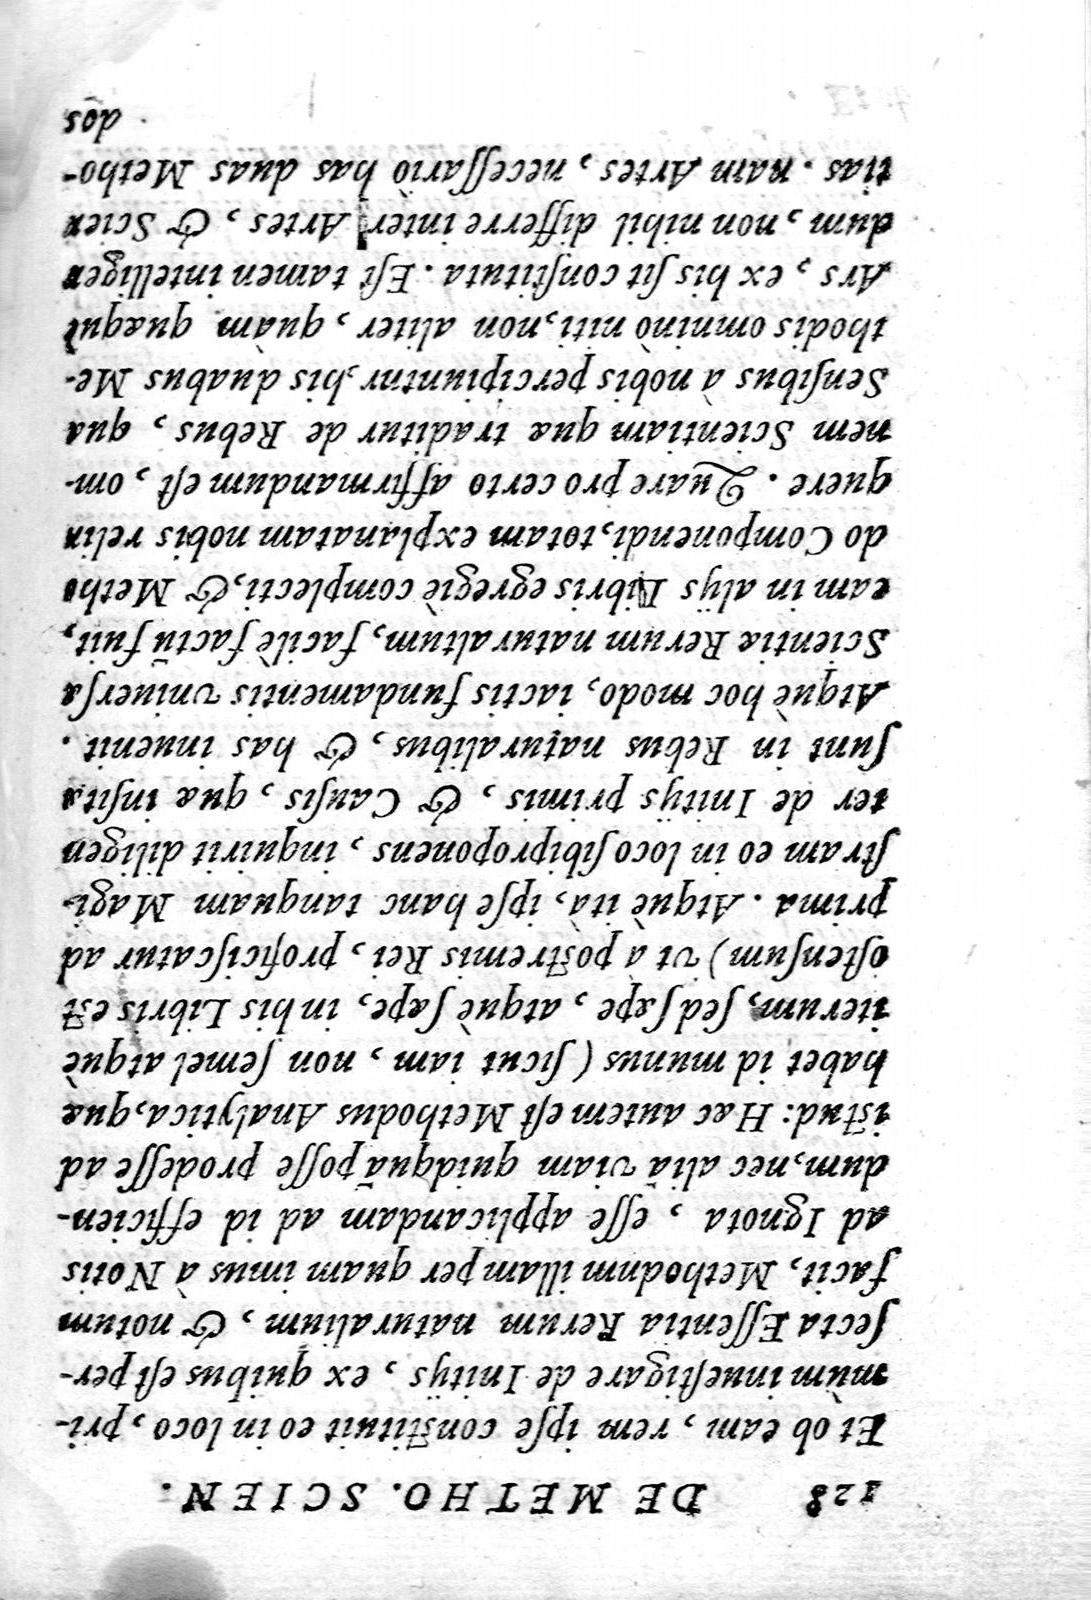 128 DE METHO. SCIEN.
Et ob eam, rem ipſe conſtituit eo in loco, pri-
mùm inueſtigare de Initijs, ex quibus eſt per-
fecta Eſſentia Rerum naturalium, & notum
facit, Methodum illam per quam imus à Notis
ad Ignota, eſſe applicandam ad id efficien-
dum, nec aliā viam quidquā poſſe prodeſſe ad
iſtud: Hæc autem eſt Methodus Analytica, quæ
habet id munus (ſicut iam, non ſemel atquè
iterum, ſed ſæpe, atquè ſæpe, in his Libris eſt
oſtenſum) vt à poſtremis Rei, proficiſcatur ad
prima. Atquè ita, ipſe hanc tanquam Magi-
ſtram eo in loco ſibi proponens, inquirit diligen
ter de Initijs primis, & Cauſis, quæ inſita
ſunt in Rebus naturalibus, & has inuenit.
Atquè hoc modo, iactis fundamentis vniuerſæ
Scientiæ Rerum naturalium, facilè factū fuit,
eam in alijs Libris egregiè complecti, & Metho
do Componendi, totam explanatam nobis relin
quere. Quare pro certo affirmandum eſt, om-
nem Scientiam quæ traditur de Rebus, quæ
Senſibus à nobis percipiuntur, his duabus Me-
thodis omninò niti, non aliter, quàm quæquè
Ars, ex his ſit conſtituta. Eſt tamen intelligen
dum, non nihil differre inter Artes, & Scien
tias. nam Artes, neceſſariò has duas Metho-
dos